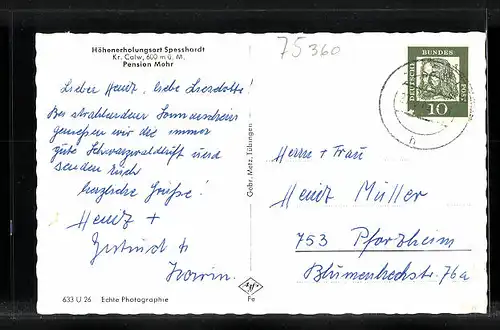 Höhenerholungsort Spesshardt
Kr. Calw, 600 m ü. M.
Pension Mohr
Lieber Heinz, liebe Lieselotte!
Bei strahlendem Sonnenschein
genießen wir die immer
gute Schwarzwaldluft und
senden Euch
herzliche Grüße!
Heinz +
Gertrud +
Karin.
633 U 26 Echte Photographie
Gebr. Metz, Tübingen
Agfa
Fe
75360
DEUTSCHE
BUNDES
POST
10
Herrn + Frau
Heinz Müller
753 Pforzheim
Blumenheckstr. 76a